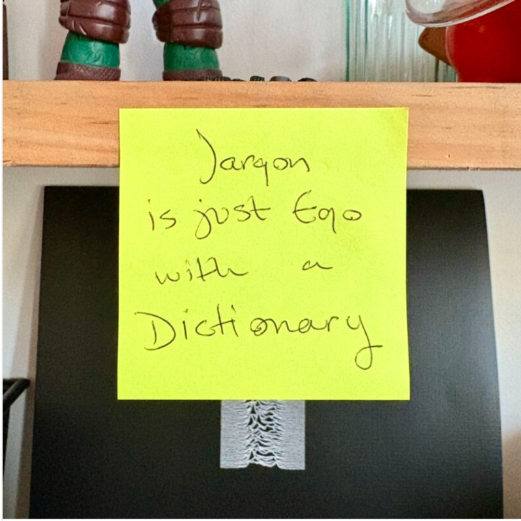 Jargon
is just Ego
with a
Dictionary